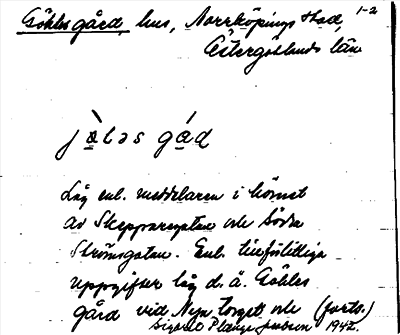 1-2
Göhles gård, hus, Norrköpings stad,
Östergötlands län
jø̀ləs gád
Låg enl. meddelaren i hörnet
av Skepparegatan och Södra
Strömsgatan. Enl. tillförlitliga
uppgifter låg d.ä. Göhles
gård vid Nya torget och (forts.)
1942.